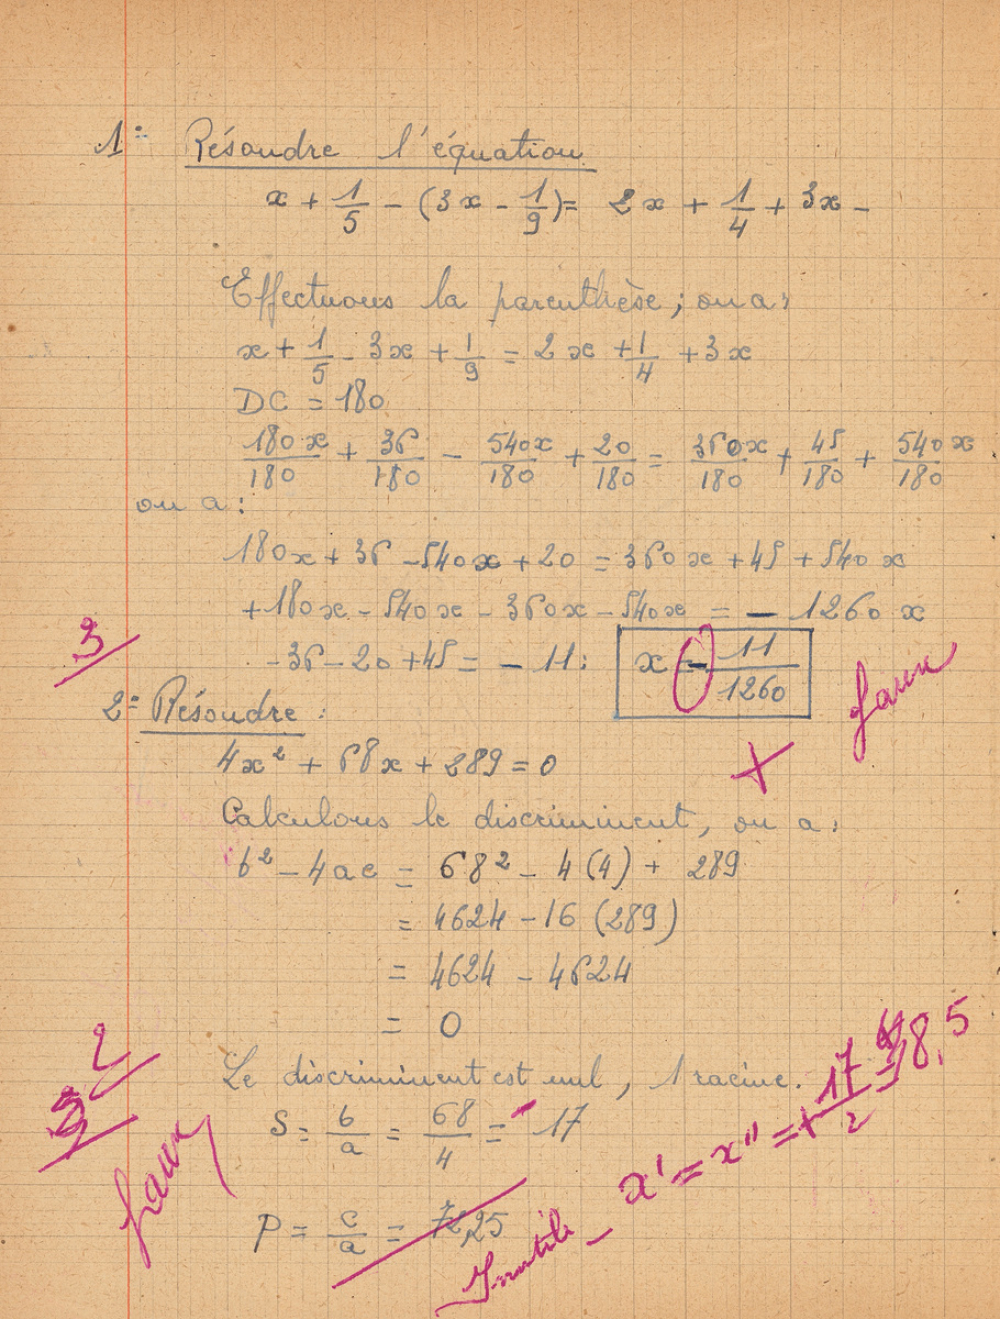 1º Résoudre l'équation
x + 1/5 - (3x - 1/9) = 2x + 1/4 + 3x -
Effectuons la parenthèse ; on a :
x + 1/5 - 3x + 1/9 = 2x + 1/4 + 3x
DC = 180
180x/180 + 36/180 - 540x/180 + 20/180 = 360x/180 + 45/180 + 540x/180
on a :
180x + 36 - 540x + 20 = 360x + 45 + 540x
+180x - 540x - 360x - 540x = - 1260x
3
-36 - 20 + 45 = - 11 : x = - 11/1260
+ faux
2º Résoudre :
4x² + 68x + 289 = 0
Calculons le discriminent, on a :
b² - 4ac = 68² - 4(4) + 289
= 4624 - 16 (289)
= 4624 - 4624
= 0
2
Le discriminent est nul, 1 racine.
S = b/a = 68/4 = - 17
faux
x' = x" = + 17/2 = 8,5
P = c/a = 72,25
Inutile